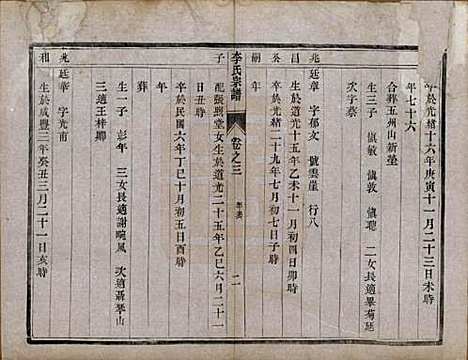 卒於光緒十六年庚寅十一月二十三日未時
年七十六
合葬五州山新塋
生三子 慎敏 慎敦 慎聰 二女長適畢菊延
次字蔡
兆昌公嗣子
廷章 字郁文 號雲崖 行八
生於道光十五年乙未十一月初四日卯時
卒於光緒二十九年七月初七日子時
年
李氏宗譜 卷之三 二
配張煦堂女生於道光二十五年乙巳六月二十一
日丑時
卒於民國六年丁巳十月初五日酉時
葬
生一子 彭年 三女長適謝曉風 次適聶攀山
三適王梓卿
兆和
廷華 字光甫
生於咸豐三年癸丑三月二十一日亥時